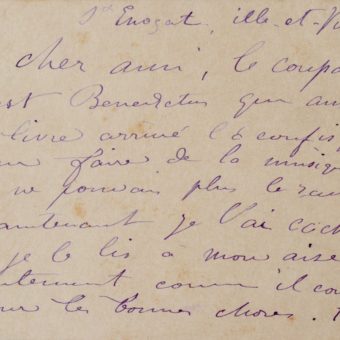 St Enogat, ille-et-Vi
cher ami, le coupa
est Benedictus qui
livre arrivé l'a confis
faire de la musiq
ne pouvais plus le
maintenant je l'ai cach
je le lis à mon aise
comme il
les bonnes choses.